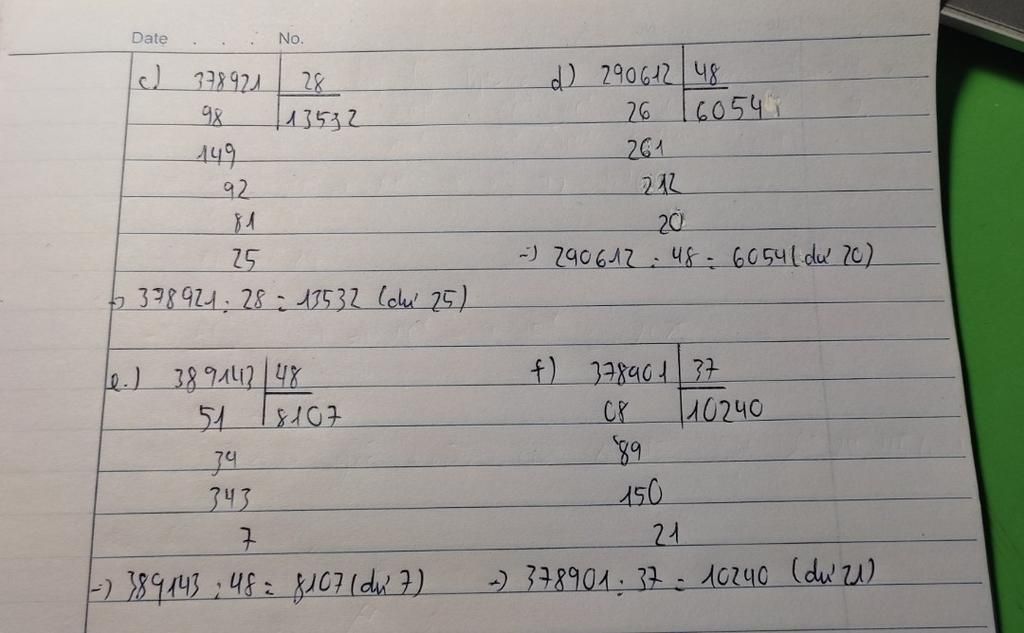 Date . . . No.
c) 378921 28
98 13532
149
92
81
25
=) 378921 : 28 = 13532 (dư 25)
d) 290612 48
26 6054
261
212
20
=) 290612 : 48 = 6054 (dư 20)
e.) 389143 48
51 8107
34
343
7
=) 389143 : 48 = 8107 (dư 7)
f) 378901 37
08 10240
89
150
21
=) 378901 : 37 = 10240 (dư 21)